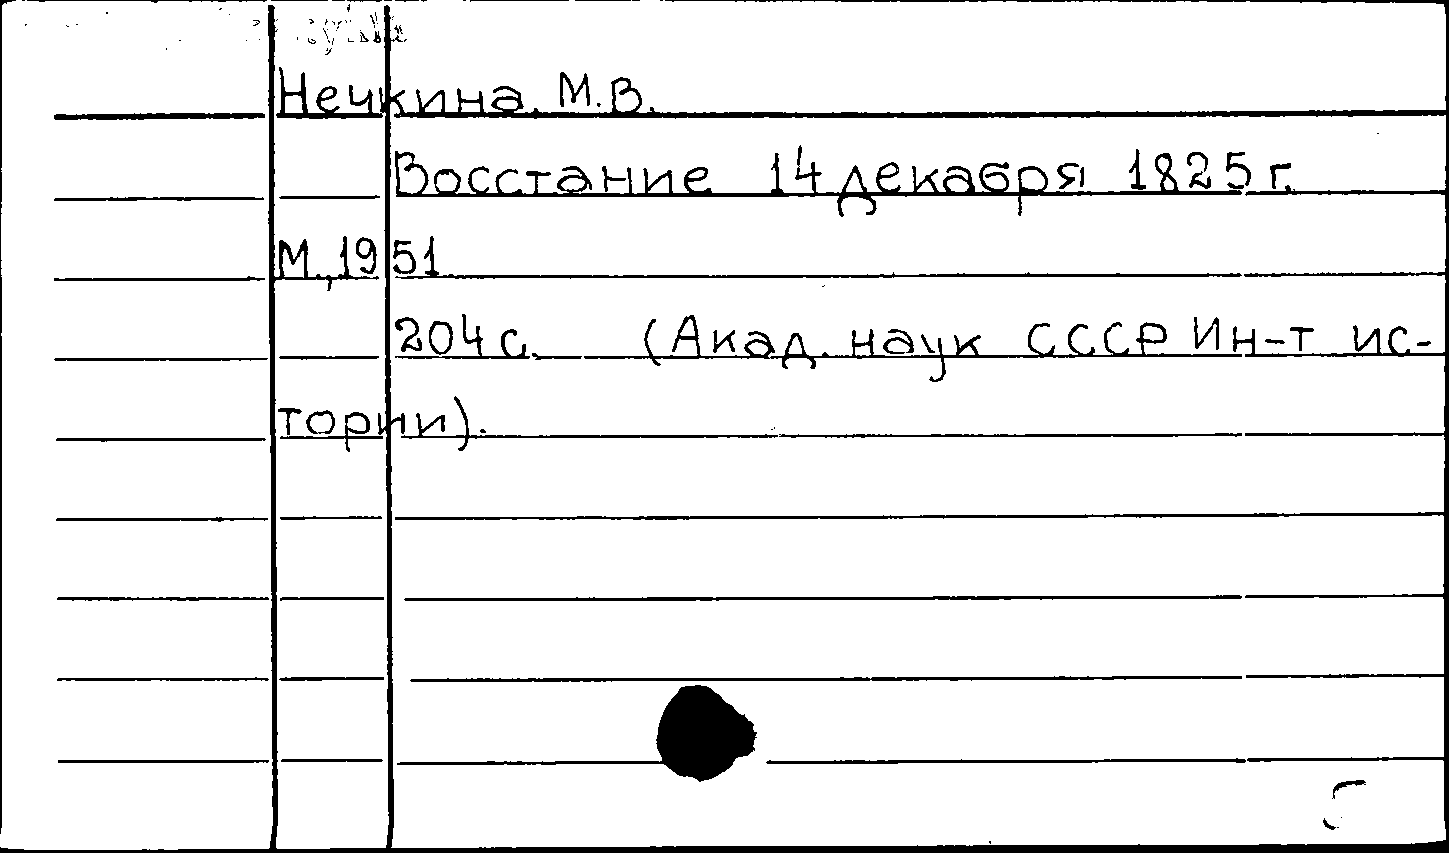 Нечкина, М.В.
Восстание 14 декабря 1825 г.
М., 1951
204 с. (Акад. наук СССР Ин-т ис-
тории).